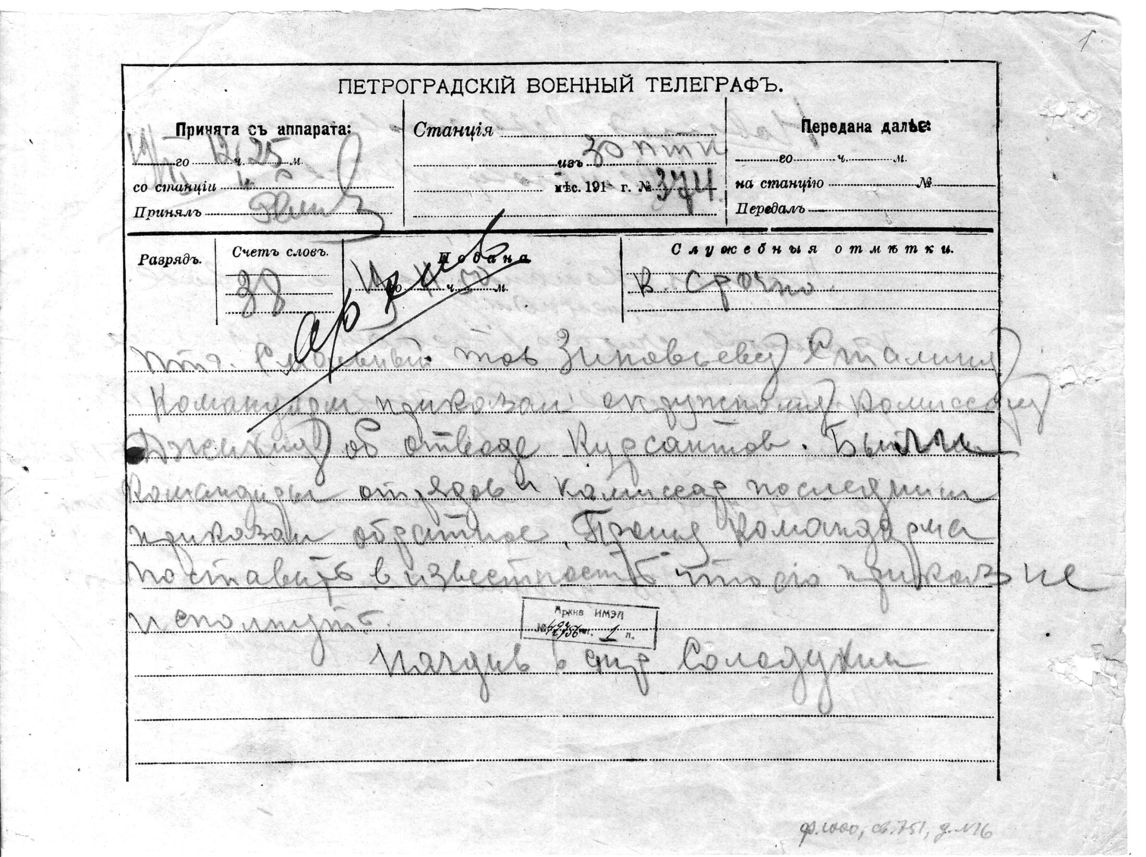 1
ПЕТРОГРАДСКІЙ ВОЕННЫЙ ТЕЛЕГРАФЪ.
Принята съ аппарата:
го 12 ч. 25 м.
со станціи
Принялъ
Станція
изъ 30 птк
мѣс. 191 г. № 374
Передана далѣе:
го ч. м.
на станцію №
Передалъ
Разрядъ.
Счетъ словъ.
38
Подана
го ч. м.
Служебныя отмѣтки.
в. срочно.
архив
птг. Смольный. тов Зиновьеву Сталину
Командарм приказал окружному комиссару
об отводе Курсантов. Были
командиры отрядов и комиссар последним
приказал обратное. Прошу Командарма
поставить в известность что его приказ не
исполнут.
Архив ИМЭЛ
№ 1 л.
Начдив 6 стр Солодухин
ф.1000, св.751, д.